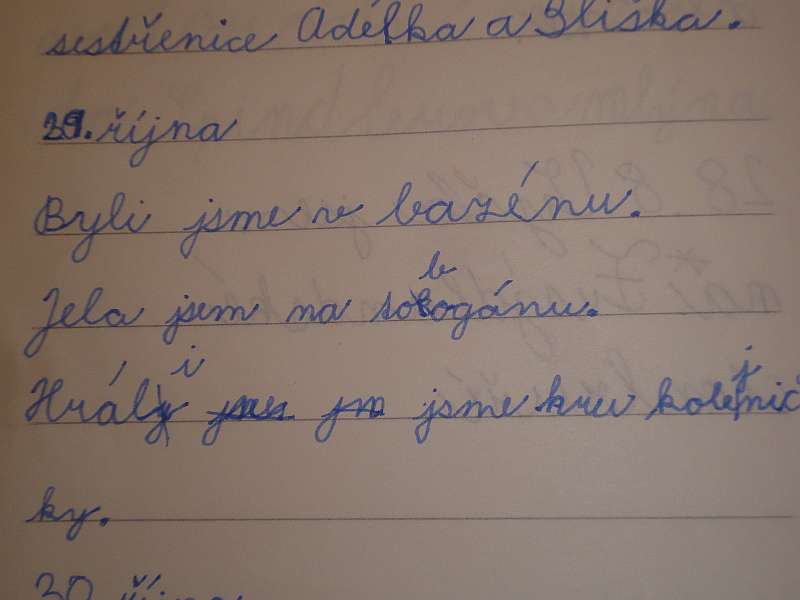 sestřenice Adélka a Bliška.
29. října
Byli jsme v bazénu.
b
Jela jsem na tobogánu.
i j
Hráli jsme hru kolejnič
ky.
30. října